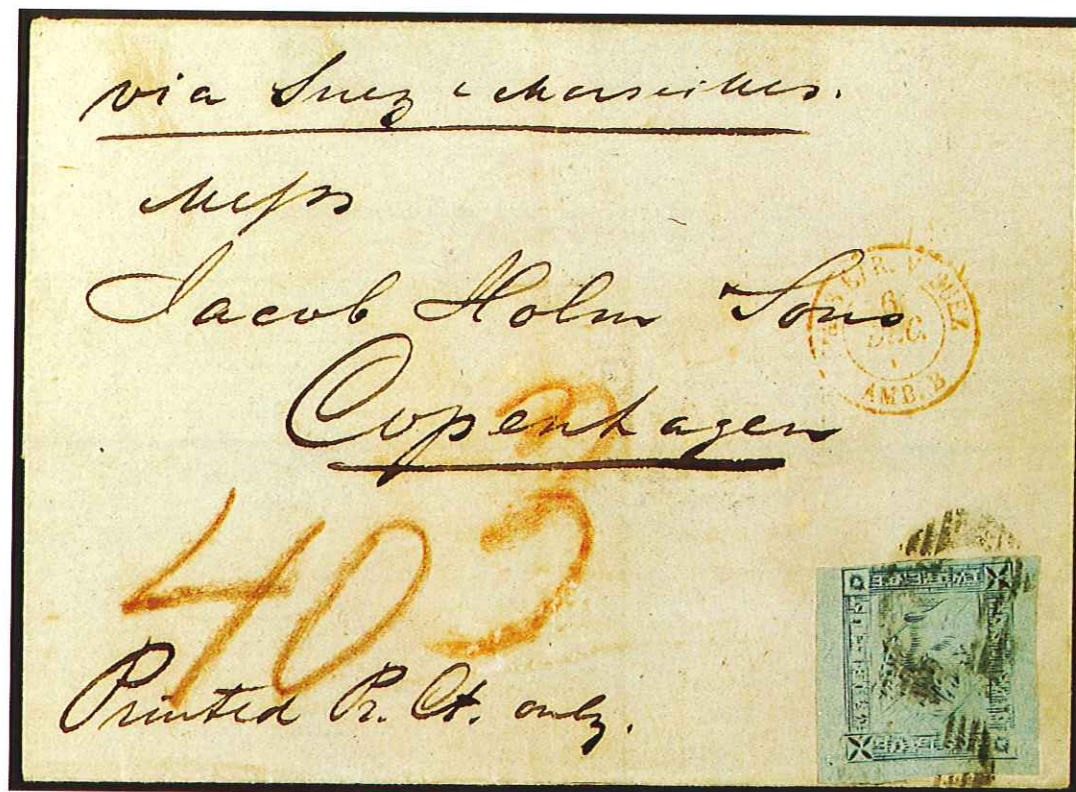 via Suez & Marseilles.
Messrs
Jacob Holm Sons
Copenhagen
6
DEC.
AMB. B
40
Printed Pr. Ct. only.